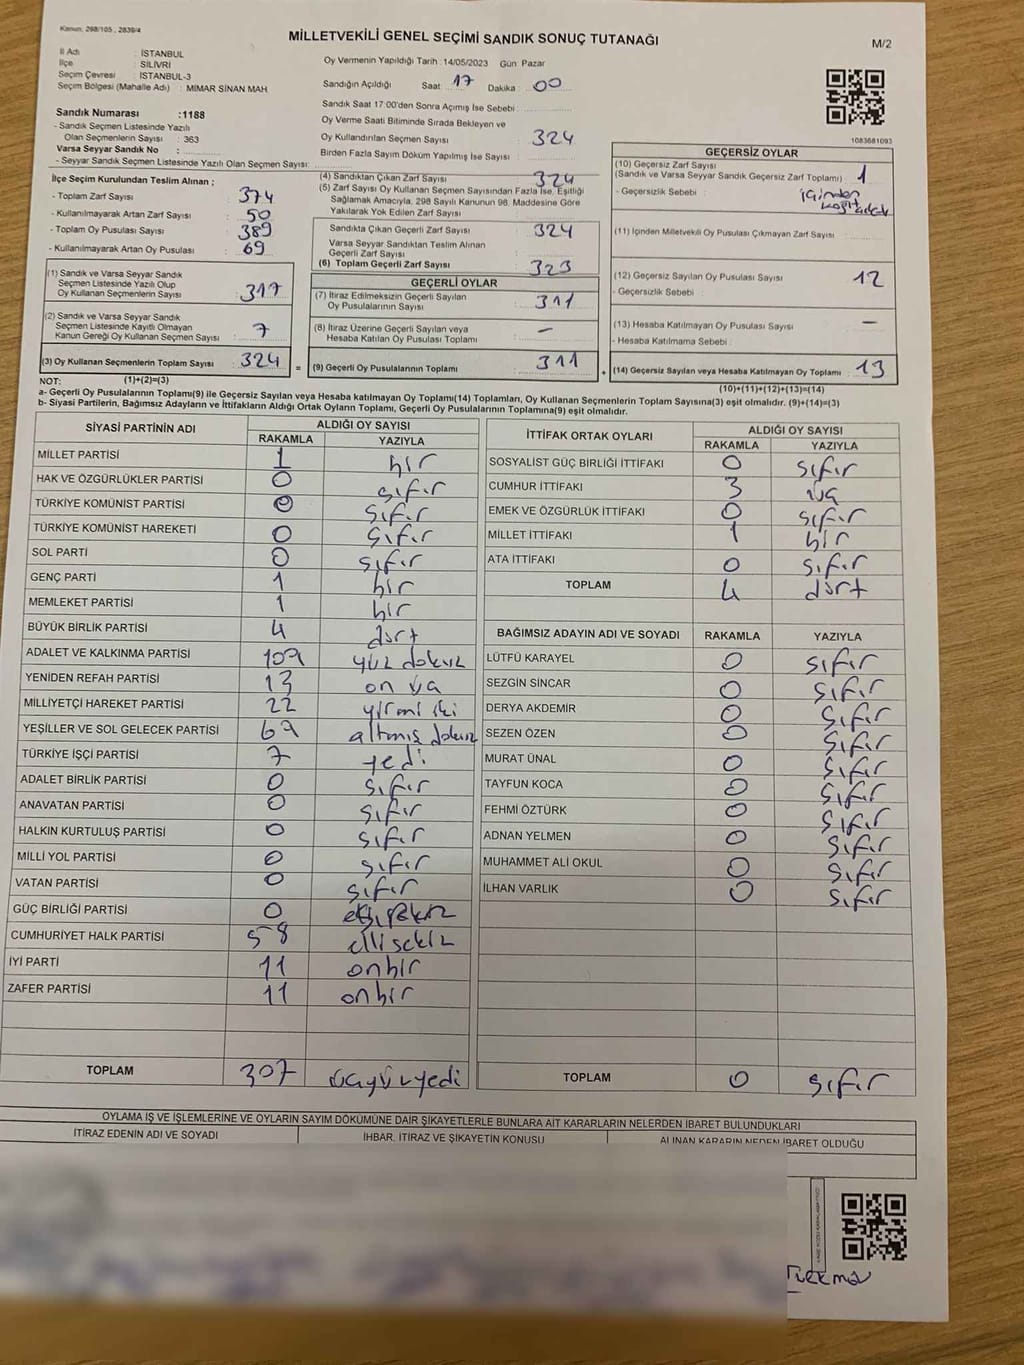 Kanun: 298/105 , 2839/4
MİLLETVEKİLİ GENEL SEÇİMİ SANDIK SONUÇ TUTANAĞI
M/2
İl Adı : İSTANBUL
İlçe : SİLİVRİ
Seçim Çevresi : İSTANBUL-3
Seçim Bölgesi (Mahalle Adı) : MİMAR SİNAN MAH
Sandık Numarası :1188
- Sandık Seçmen Listesinde Yazılı
Olan Seçmenlerin Sayısı : 363
Varsa Seyyar Sandık No :
- Seyyar Sandık Seçmen Listesinde Yazılı Olan Seçmen Sayısı:
Oy Vermenin Yapıldığı Tarih : 14/05/2023 Gün: Pazar
Sandığın Açıldığı Saat : 17 Dakika : 00
Sandık Saat 17:00'den Sonra Açımış İse Sebebi :
Oy Verme Saati Bitiminde Sırada Bekleyen ve
Oy Kullandırılan Seçmen Sayısı : 324
Birden Fazla Sayım Döküm Yapılmış İse Sayısı :
1083681093
İlçe Seçim Kurulundan Teslim Alınan ;
- Toplam Zarf Sayısı : 374
- Kullanılmayarak Artan Zarf Sayısı : 50
- Toplam Oy Pusulası Sayısı : 389
- Kullanılmayarak Artan Oy Pusulası : 69
(1) Sandık ve Varsa Seyyar Sandık
Seçmen Listesinde Yazılı Olup
Oy Kullanan Seçmenlerin Sayısı : 317
(2) Sandık ve Varsa Seyyar Sandık
Seçmen Listesinde Kayıtlı Olmayan
Kanun Gereği Oy Kullanan Seçmen Sayısı : 7
(3) Oy Kullanan Seçmenlerin Toplam Sayısı : 324
(4) Sandıktan Çıkan Zarf Sayısı : 324
(5) Zarf Sayısı Oy Kullanan Seçmen Sayısından Fazla İse, Eşitliği
Sağlamak Amacıyla, 298 Sayılı Kanunun 98. Maddesine Göre
Yakılarak Yok Edilen Zarf Sayısı :
Sandıkta Çıkan Geçerli Zarf Sayısı : 324
Varsa Seyyar Sandıktan Teslim Alınan
Geçerli Zarf Sayısı :
(6) Toplam Geçerli Zarf Sayısı : 323
GEÇERLİ OYLAR
(7) İtiraz Edilmeksizin Geçerli Sayılan
Oy Pusulalarının Sayısı : 311
(8) İtiraz Üzerine Geçerli Sayılan veya
Hesaba Katılan Oy Pusulası Toplamı : –
(9) Geçerli Oy Pusulalarının Toplamı : 311
GEÇERSİZ OYLAR
(10) Geçersiz Zarf Sayısı
(Sandık ve Varsa Seyyar Sandık Geçersiz Zarf Toplamı) : 1
- Geçersizlik Sebebi : içinden
(11) İçinden Milletvekili Oy Pusulası Çıkmayan Zarf Sayısı :
(12) Geçersiz Sayılan Oy Pusulası Sayısı : 12
- Geçersizlik Sebebi :
(13) Hesaba Katılmayan Oy Pusulası Sayısı : –
- Hesaba Katılmama Sebebi :
(14) Geçersiz Sayılan veya Hesaba Katılmayan Oy Toplamı : 13
NOT: (1)+(2)=(3) (10)+(11)+(12)+(13)=(14)
a- Geçerli Oy Pusulalarının Toplamı(9) ile Geçersiz Sayılan veya Hesaba Katılmayan Oy Toplamı(14) Toplamları, Oy Kullanan Seçmenlerin Toplam Sayısına(3) eşit olmalıdır. (9)+(14)=(3)
b- Siyasi Partilerin, Bağımsız Adayların ve İttifakların Aldığı Ortak Oyların Toplamı, Geçerli Oy Pusulalarının Toplamına(9) eşit olmalıdır.
SİYASİ PARTİNİN ADI ALDIĞI OY SAYISI
RAKAMLA YAZIYLA
MİLLET PARTİSİ 1 bir
HAK VE ÖZGÜRLÜKLER PARTİSİ 0 sıfır
TÜRKİYE KOMÜNİST PARTİSİ 0 sıfır
TÜRKİYE KOMÜNİST HAREKETİ 0 sıfır
SOL PARTİ 0 sıfır
GENÇ PARTİ 1 bir
MEMLEKET PARTİSİ 1 bir
BÜYÜK BİRLİK PARTİSİ 4 dört
ADALET VE KALKINMA PARTİSİ 109 yüz dokuz
YENİDEN REFAH PARTİSİ 13 on üç
MİLLİYETÇİ HAREKET PARTİSİ 22 yirmi iki
YEŞİLLER VE SOL GELECEK PARTİSİ 69 altmış dokuz
TÜRKİYE İŞÇİ PARTİSİ 7 yedi
ADALET BİRLİK PARTİSİ 0 sıfır
ANAVATAN PARTİSİ 0 sıfır
HALKIN KURTULUŞ PARTİSİ 0 sıfır
MİLLİ YOL PARTİSİ 0 sıfır
VATAN PARTİSİ 0 sıfır
GÜÇ BİRLİĞİ PARTİSİ 0
CUMHURİYET HALK PARTİSİ 58 elli sekiz
İYİ PARTİ 11 onbir
ZAFER PARTİSİ 11 onbir
TOPLAM 307 üçyüzyedi
İTTİFAK ORTAK OYLARI ALDIĞI OY SAYISI
RAKAMLA YAZIYLA
SOSYALİST GÜÇ BİRLİĞİ İTTİFAKI 0 sıfır
CUMHUR İTTİFAKI 3 üç
EMEK VE ÖZGÜRLÜK İTTİFAKI 0 sıfır
MİLLET İTTİFAKI 1 bir
ATA İTTİFAKI 0 sıfır
TOPLAM 4 dört
BAĞIMSIZ ADAYIN ADI VE SOYADI RAKAMLA YAZIYLA
LÜTFÜ KARAYEL 0 sıfır
SEZGİN SİNCAR 0 sıfır
DERYA AKDEMİR 0 sıfır
SEZEN ÖZEN 0 sıfır
MURAT ÜNAL 0 sıfır
TAYFUN KOCA 0 sıfır
FEHMİ ÖZTÜRK 0 sıfır
ADNAN YELMEN 0 sıfır
MUHAMMET ALİ OKUL 0 sıfır
İLHAN VARLIK 0 sıfır
TOPLAM 0 sıfır
OYLAMA İŞ VE İŞLEMLERİNE VE OYLARIN SAYIM DÖKÜMÜNE DAİR ŞİKAYETLERLE BUNLARA AİT KARARLARIN NELERDEN İBARET BULUNDUKLARI
İTİRAZ EDENİN ADI VE SOYADI İHBAR, İTİRAZ VE ŞİKAYETİN KONUSU ALINAN KARARIN NEDEN İBARET OLDUĞU